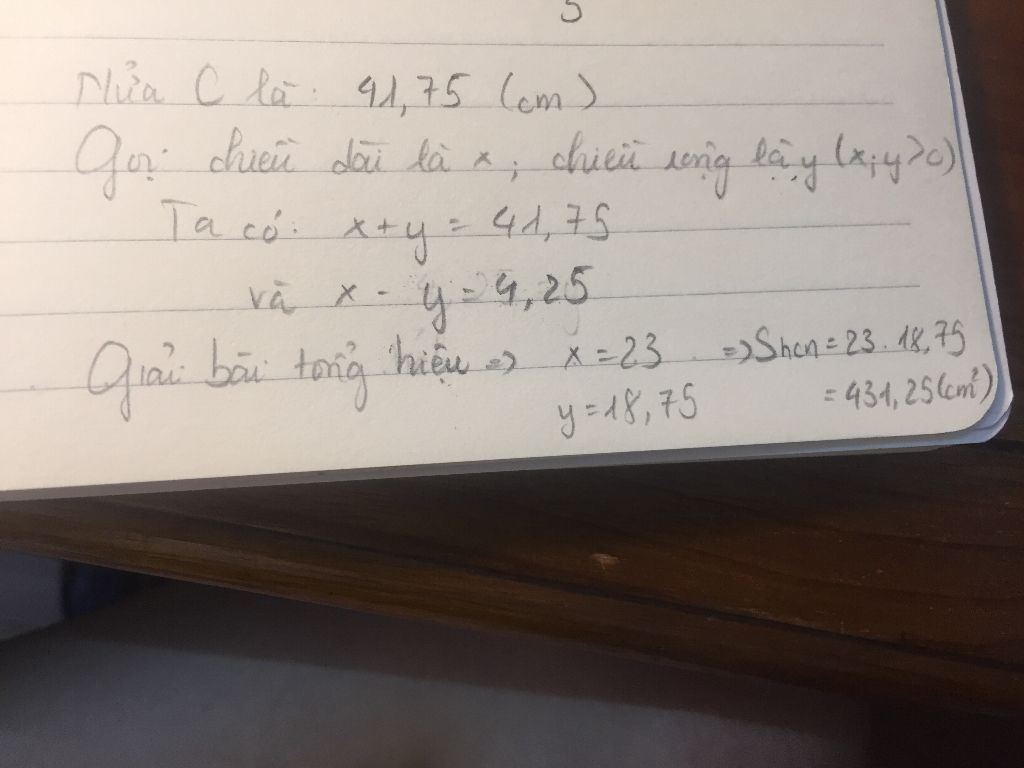 5
Nửa C là: 41,75 (cm)
Gọi chiều dài là x; chiều rộng là y (x;y>0)
Ta có: x+y = 41,75
và x - y = 4,25
Giải bài tổng hiệu => x = 23 => Shcn = 23.18,75
y = 18,75 = 431,25 (cm²)